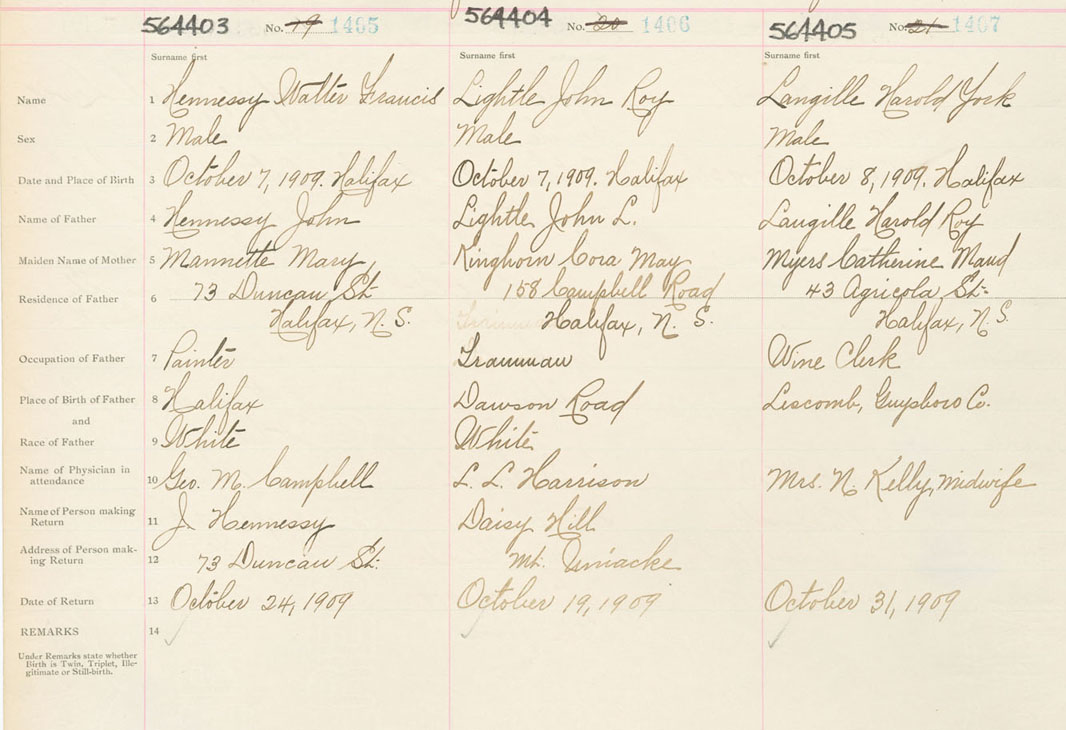 564403 No. 19 1405 564404 No. 20 1406 564405 No. 21 1407
Surname first Surname first Surname first
Name 1 Hennessy Walter Francis Lightle John Roy Langille Harold York
Sex 2 Male Male Male
Date and Place of Birth 3 October 7, 1909. Halifax October 7, 1909. Halifax October 8, 1909. Halifax
Name of Father 4 Hennessy John Lightle John L. Langille Harold Roy
Maiden Name of Mother 5 Mannette Mary Kinghorn Cora May Myers Catherine Maud
Residence of Father 6 73 Duncan St. 158 Campbell Road 43 Agricola St.
Halifax, N. S. Halifax, N. S. Halifax, N. S.
Occupation of Father 7 Painter Tramman Wine Clerk
Place of Birth of Father 8 Halifax Dawson Road Liscomb, Guysboro Co.
and
Race of Father 9 White White
Name of Physician in
attendance 10 Geo. M. Campbell L. L. Harrison Mrs. N. Kelly, midwife
Name of Person making
Return 11 J. Hennessy Daisy Hill
Address of Person mak-
ing Return 12 73 Duncan St. Mt. Uniacke
Date of Return 13 October 24, 1909 October 19, 1909 October 31, 1909
REMARKS 14
Under Remarks state whether
Birth is Twin, Triplet, Ille-
gitimate or Still-birth.